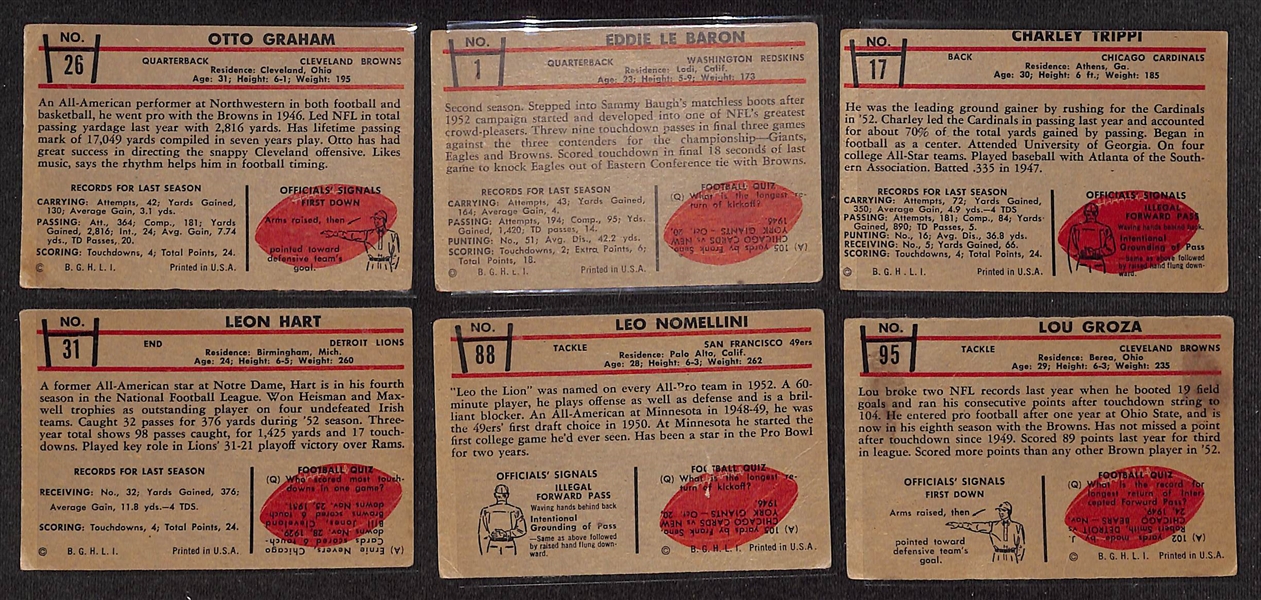 NO.
26
OTTO GRAHAM
QUARTERBACK CLEVELAND BROWNS
Residence: Cleveland, Ohio
Age: 31; Height: 6-1; Weight: 195
An All-American performer at Northwestern in both football and
basketball, he went pro with the Browns in 1946. Led NFL in total
passing yardage last year with 2,816 yards. Has lifetime passing
mark of 17,049 yards compiled in seven years play. Otto has had
great success in directing the snappy Cleveland offensive. Likes
music, says the rhythm helps him in football timing.
RECORDS FOR LAST SEASON
CARRYING: Attempts, 42; Yards Gained,
130; Average Gain, 3.1 yds.
PASSING: Att., 364; Comp., 181; Yards
Gained, 2,816; Int., 24; Avg. Gain, 7.74
yds., TD Passes, 20.
SCORING: Touchdowns, 4; Total Points, 24.
© B. G. H. L. I. Printed in U.S.A.
OFFICIALS' SIGNALS
FIRST DOWN
Arms raised, then
pointed toward
defensive team's
goal.
NO.
1
EDDIE LE BARON
QUARTERBACK WASHINGTON REDSKINS
Residence: Lodi, Calif.
Age: 23; Height: 5-9; Weight: 173
Second season. Stepped into Sammy Baugh's matchless boots after
1952 campaign started and developed into one of NFL's greatest
crowd-pleasers. Threw nine touchdown passes in final three games
against the three contenders for the championship—Giants,
Eagles and Browns. Scored touchdown in final 18 seconds of last
game to knock Eagles out of Eastern Conference tie with Browns.
RECORDS FOR LAST SEASON
CARRYING: Attempts, 43; Yards Gained,
164; Average Gain, 4.
PASSING: Attempts, 194; Comp., 95; Yds.
Gained, 1,420; TD passes, 14.
PUNTING: No., 51; Avg. Dis., 42.2 yds.
SCORING: Touchdowns, 2; Extra Points, 6;
Total Points, 18.
© B. G. H. L. I. Printed in U.S.A.
FOOTBALL QUIZ
(Q) What is the longest re-
turn of kickoff?
(A) 105 yards by Frank Seno
CHICAGO CARDS vs NEW
YORK GIANTS - Oct. 20,
1946.
NO.
17
CHARLEY TRIPPI
BACK CHICAGO CARDINALS
Residence: Athens, Ga.
Age: 30; Height: 6 ft.; Weight: 185
He was the leading ground gainer by rushing for the Cardinals
in '52. Charley led the Cardinals in passing last year and accounted
for about 70% of the total yards gained by passing. Began in
football as a center. Attended University of Georgia. On four
college All-Star teams. Played baseball with Atlanta of the South-
ern Association. Batted .335 in 1947.
RECORDS FOR LAST SEASON
CARRYING: Attempts, 72; Yards Gained,
350, Average Gain, 4.9 yds.—4 TDS
PASSING: Attempts, 181; Comp., 84; Yards
Gained, 890; TD Passes, 5.
PUNTING: No., 16; Avg. Dis., 36.8 yds.
RECEIVING: No., 5; Yards Gained, 66.
SCORING: Touchdowns, 4; Total Points, 24.
© B. G. H. L. I. Printed in U.S.A.
OFFICIALS' SIGNALS
ILLEGAL
FORWARD PASS
Waving hands behind back.
Intentional
Grounding of Pass
—Same as above followed
by raised hand flung down-
ward.
NO.
31
LEON HART
END DETROIT LIONS
Residence: Birmingham, Mich.
Age: 24; Height: 6-5; Weight: 260
A former All-American star at Notre Dame, Hart is in his fourth
season in the National Football League. Won Heisman and Max-
well trophies as outstanding player on four undefeated Irish
teams. Caught 32 passes for 376 yards during '52 season. Three-
year total shows 98 passes caught, for 1,425 yards and 17 touch-
downs. Played key role in Lions' 31-21 playoff victory over Rams.
RECORDS FOR LAST SEASON
RECEIVING: No., 32; Yards Gained, 376;
Average Gain, 11.8 yds.—4 TDS.
SCORING: Touchdowns, 4; Total Points, 24.
© B. G. H. L. I. Printed in U.S.A.
FOOTBALL QUIZ
(Q) Who scored most touch-
downs in one game?
(A) Ernie Nevers, Chicago
Cards scored 6 Touch-
downs Nov. 28, 1929
Bill Jones, Cleveland
Browns scored 6 touch
downs Nov. 25, 1951.
NO.
88
LEO NOMELLINI
TACKLE SAN FRANCISCO 49ers
Residence: Palo Alto, Calif.
Age: 28; Height: 6-3; Weight: 262
"Leo the Lion" was named on every All-Pro team in 1952. A 60-
minute player, he plays offense as well as defense and is a bril-
liant blocker. An All-American at Minnesota in 1948-49, he was
the 49ers' first draft choice in 1950. At Minnesota he started the
first college game he'd ever seen. Has been a star in the Pro Bowl
for two years.
OFFICIALS' SIGNALS
ILLEGAL
FORWARD PASS
Waving hands behind back
Intentional
Grounding of Pass
—Same as above followed
by raised hand flung down-
ward.
FOOTBALL QUIZ
(Q) What is the longest re-
turn of kickoff?
(A) 105 yards by Frank Seno
CHICAGO CARDS vs NEW
YORK GIANTS - Oct. 20,
1946.
© B. G. H. L. I. Printed in U.S.A.
NO.
95
LOU GROZA
TACKLE CLEVELAND BROWNS
Residence: Berea, Ohio
Age: 29; Height: 6-3; Weight: 235
Lou broke two NFL records last year when he booted 19 field
goals and ran his consecutive points after touchdown string to
104. He entered pro football after one year at Ohio State, and is
now in his eighth season with the Browns. Has not missed a point
after touchdown since 1949. Scored 89 points last year for third
in league. Scored more points than any other Brown player in '52.
OFFICIALS' SIGNALS
FIRST DOWN
Arms raised, then
pointed toward
defensive team's
goal.
FOOTBALL QUIZ
(Q) What is the record for
longest return of Inter
cepted Forward Pass?
(A) 102 yards made by J.
Robert Smith, Detroit vs
CHICAGO BEARS - Nov.
24, 1949.
© B. G. H. L. I. Printed in U.S.A.